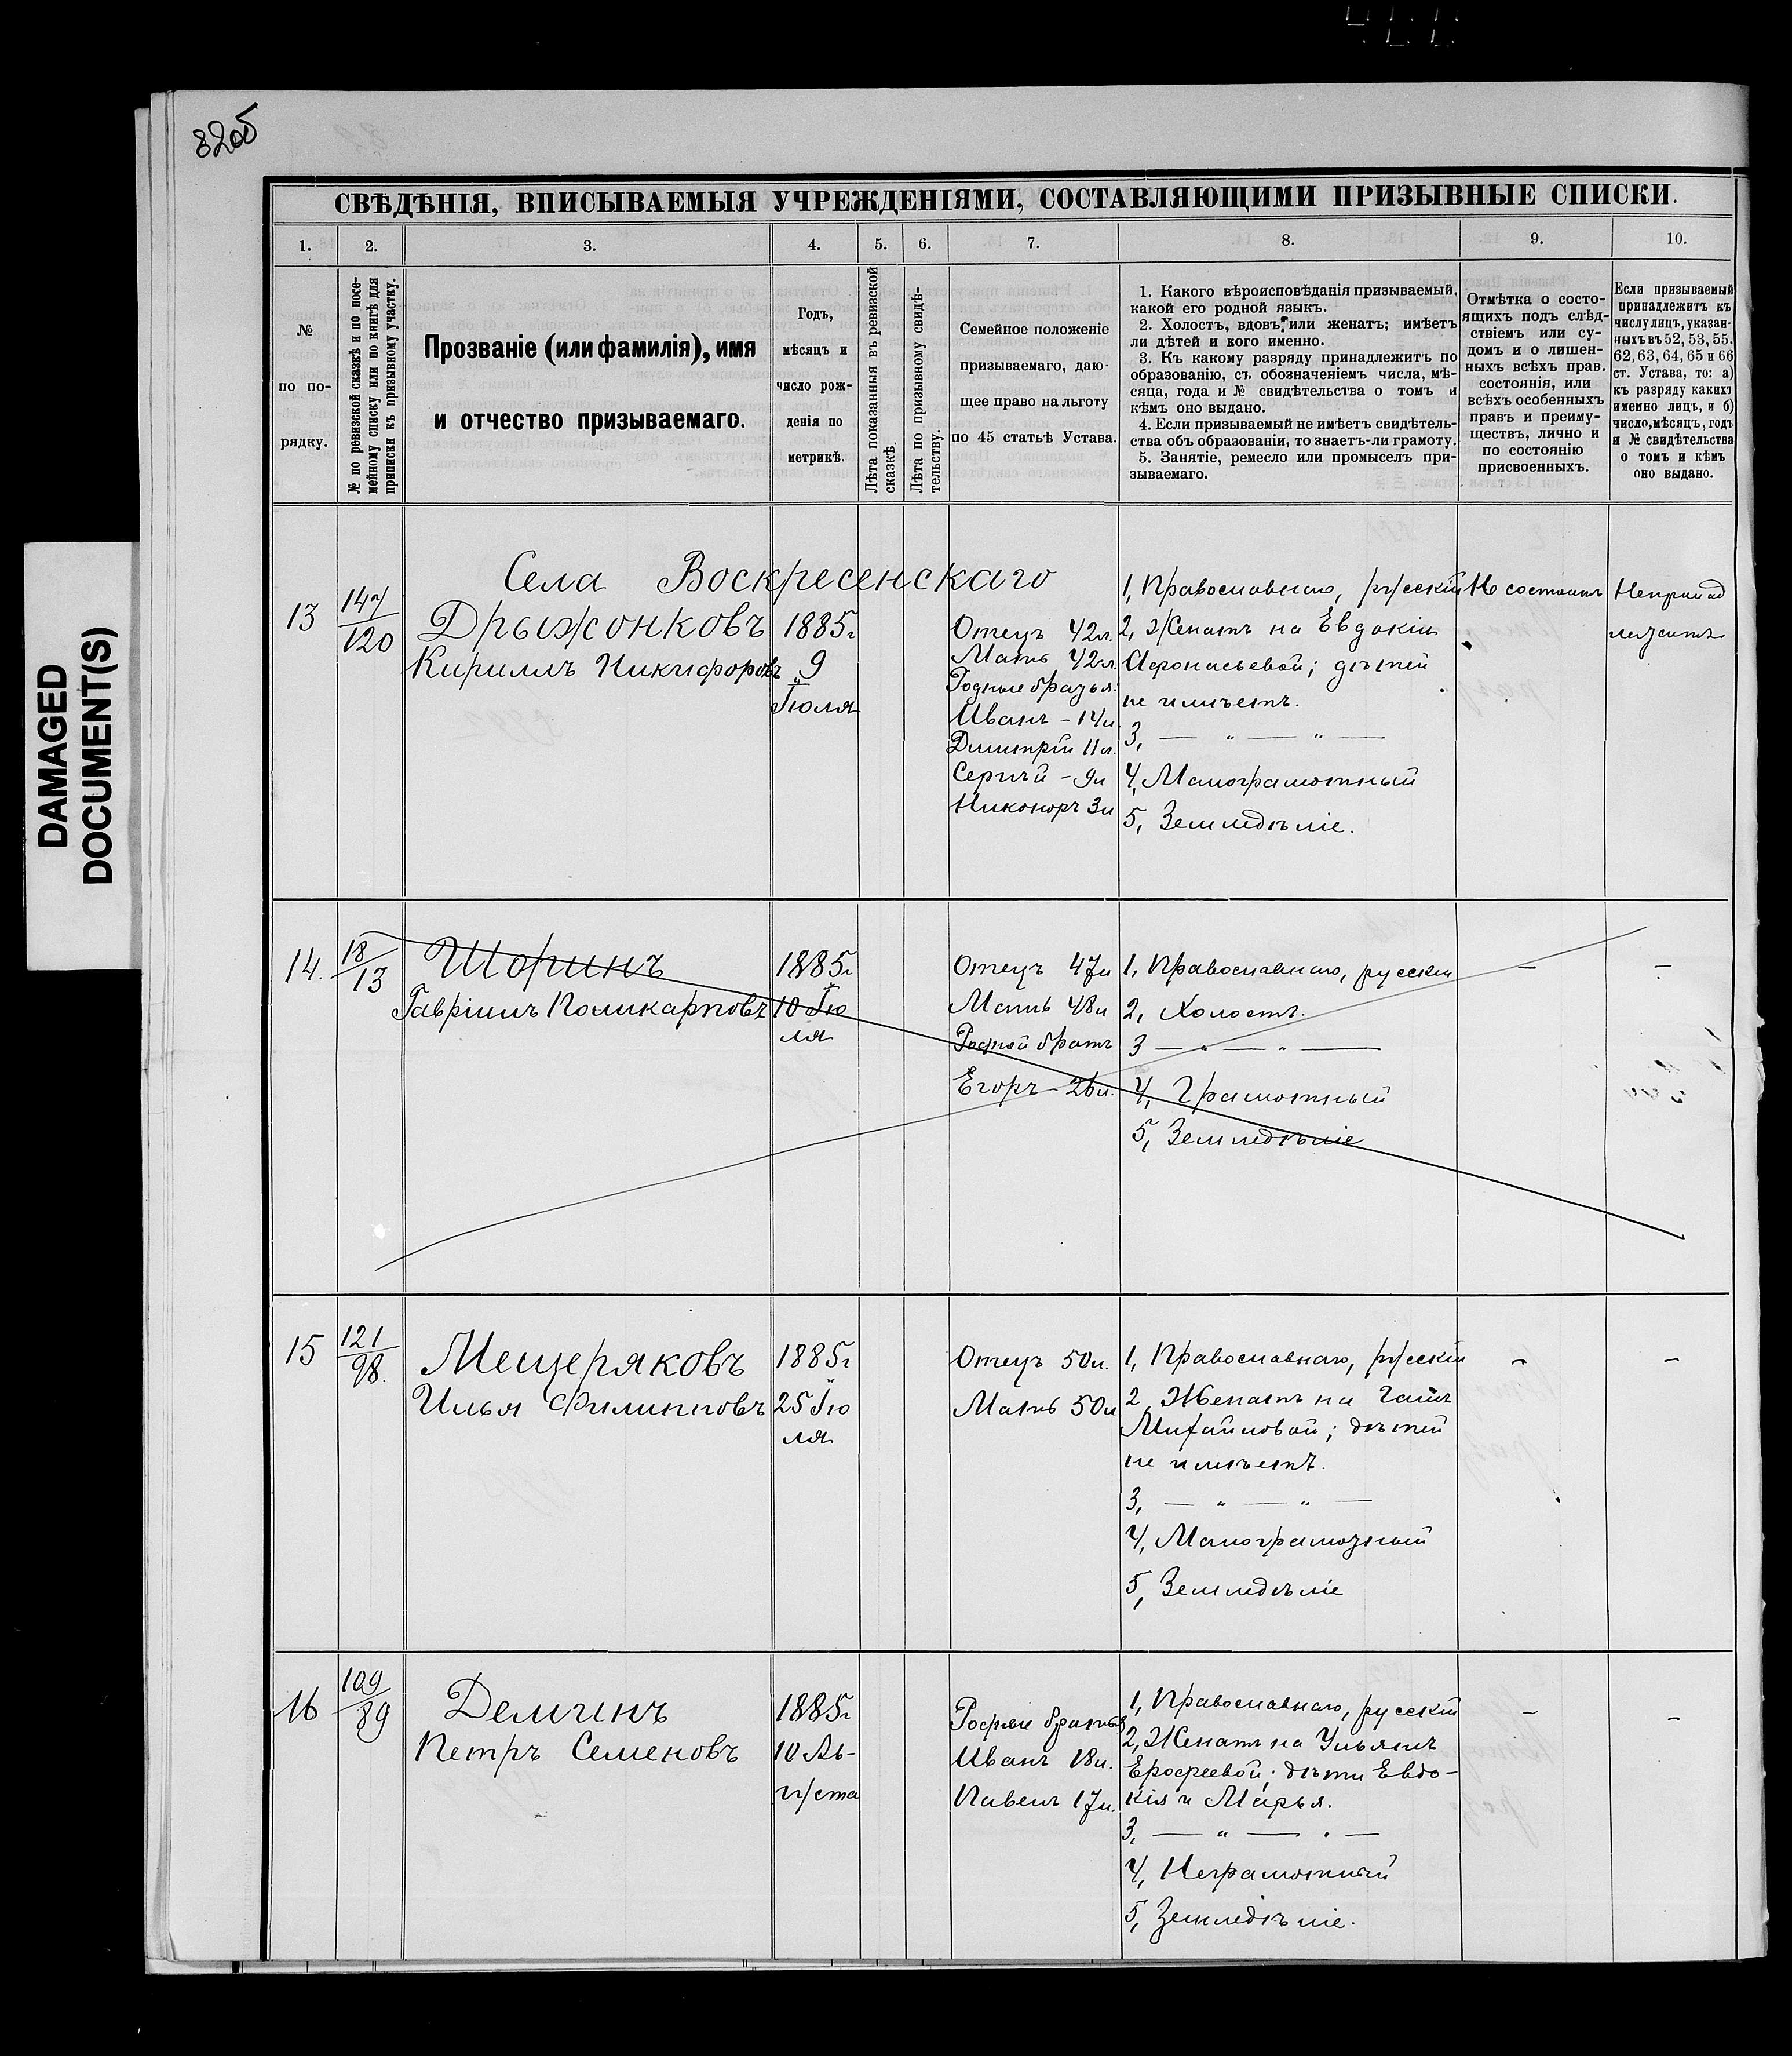 82об
DAMAGED
DOCUMENT(S)
СВѢДѢНІЯ, ВПИСЫВАЕМЫЯ УЧРЕЖДЕНІЯМИ, СОСТАВЛЯЮЩИМИ ПРИЗЫВНЫЕ СПИСКИ.
1. 2. 3. 4. 5. 6. 7. 8. 9. 10.
№
по по-
рядку.
№ по ревизской сказкѣ и по посе-
мейному списку или по книгѣ для
приписки къ призывному участку.
Прозваніе (или фамилія), имя
и отчество призываемаго.
Годъ,
мѣсяцъ и
число рож-
денія по
метрикѣ.
Лѣта показанныя въ ревизской
сказкѣ.
Лѣта по призывному свидѣ-
тельству.
Семейное положеніе
призываемаго, даю-
щее право на льготу
по 45 статьѣ Устава.
1. Какого вѣроисповѣданія призываемый,
какой его родной языкъ.
2. Холостъ, вдовъ или женатъ; имѣетъ
ли дѣтей и кого именно.
3. Къ какому разряду принадлежитъ по
образованію, съ обозначеніемъ числа, мѣ-
сяца, года и № свидѣтельства о томъ и
кѣмъ оно выдано.
4. Если призываемый не имѣетъ свидѣтель-
ства объ образованіи, то знаетъ-ли грамоту.
5. Занятіе, ремесло или промыселъ при-
зываемаго.
Отмѣтка о состо-
ящихъ подъ слѣд-
ствіемъ или су-
домъ и о лишен-
ныхъ всѣхъ прав.
состоянія, или
всѣхъ особенныхъ
правъ и преиму-
ществъ, лично и
по состоянію
присвоенныхъ.
Если призываемый
принадлежитъ къ
числу лицъ, указан-
ныхъ въ 52, 53, 55.
62, 63, 64, 65 и 66
ст. Устава, то: а)
къ разряду какихъ
именно лицъ, и б)
число, мѣсяцъ, годъ
и № свидѣтельства
о томъ и кѣмъ
оно выдано.
Села Воскресенскаго
13
147/120
Дрыжонковъ
Кириллъ Никифоровъ
1885г
9
Іюля
Отецъ 42л.
Мать 42л.
Родные братья:
Иванъ - 14л
Димитрій 11л.
Сергѣй - 9л
Никоноръ 3л
1, Православнаго, русскій
2, Женатъ на Евдокіи
Афонасьевой; дѣтей
не имѣетъ.
3, — " — " —
4, Малограмотный
5, Земледѣліе.
Не состоитъ
Непринад
лежитъ
14.
18/13
Шоринъ
Гавріилъ Поликарповъ
1885г
10 Ію
ля
Отецъ 47л
Мать 48л
Родной братъ
Егоръ - 26л.
1, Православнаго, русскій
2, Холостъ.
3 — " — " —
4, Грамотный
5, Земледѣліе
-
-
15
121/98.
Мещеряковъ
Илья Филипповъ
1885г
25 Ію
ля
Отецъ 50л.
Мать 50л
1, Православнаго, русскій
2, Женатъ на
Михайловой; дѣтей
не имѣетъ.
3, — " — " —
4, Малограмотный
5, Земледѣліе
-
-
16
109/89
Демчинъ
Петръ Семеновъ
1885г
10 Ав-
густа
Родные братья
Иванъ 18л.
Павелъ 17л.
1, Православнаго, русскій
2, Женатъ на Ульянѣ
Ерофеевой; дѣти Евдо-
кія и Марья.
3, — " — " —
4, Неграмотный
5, Земледѣліе.
-
-